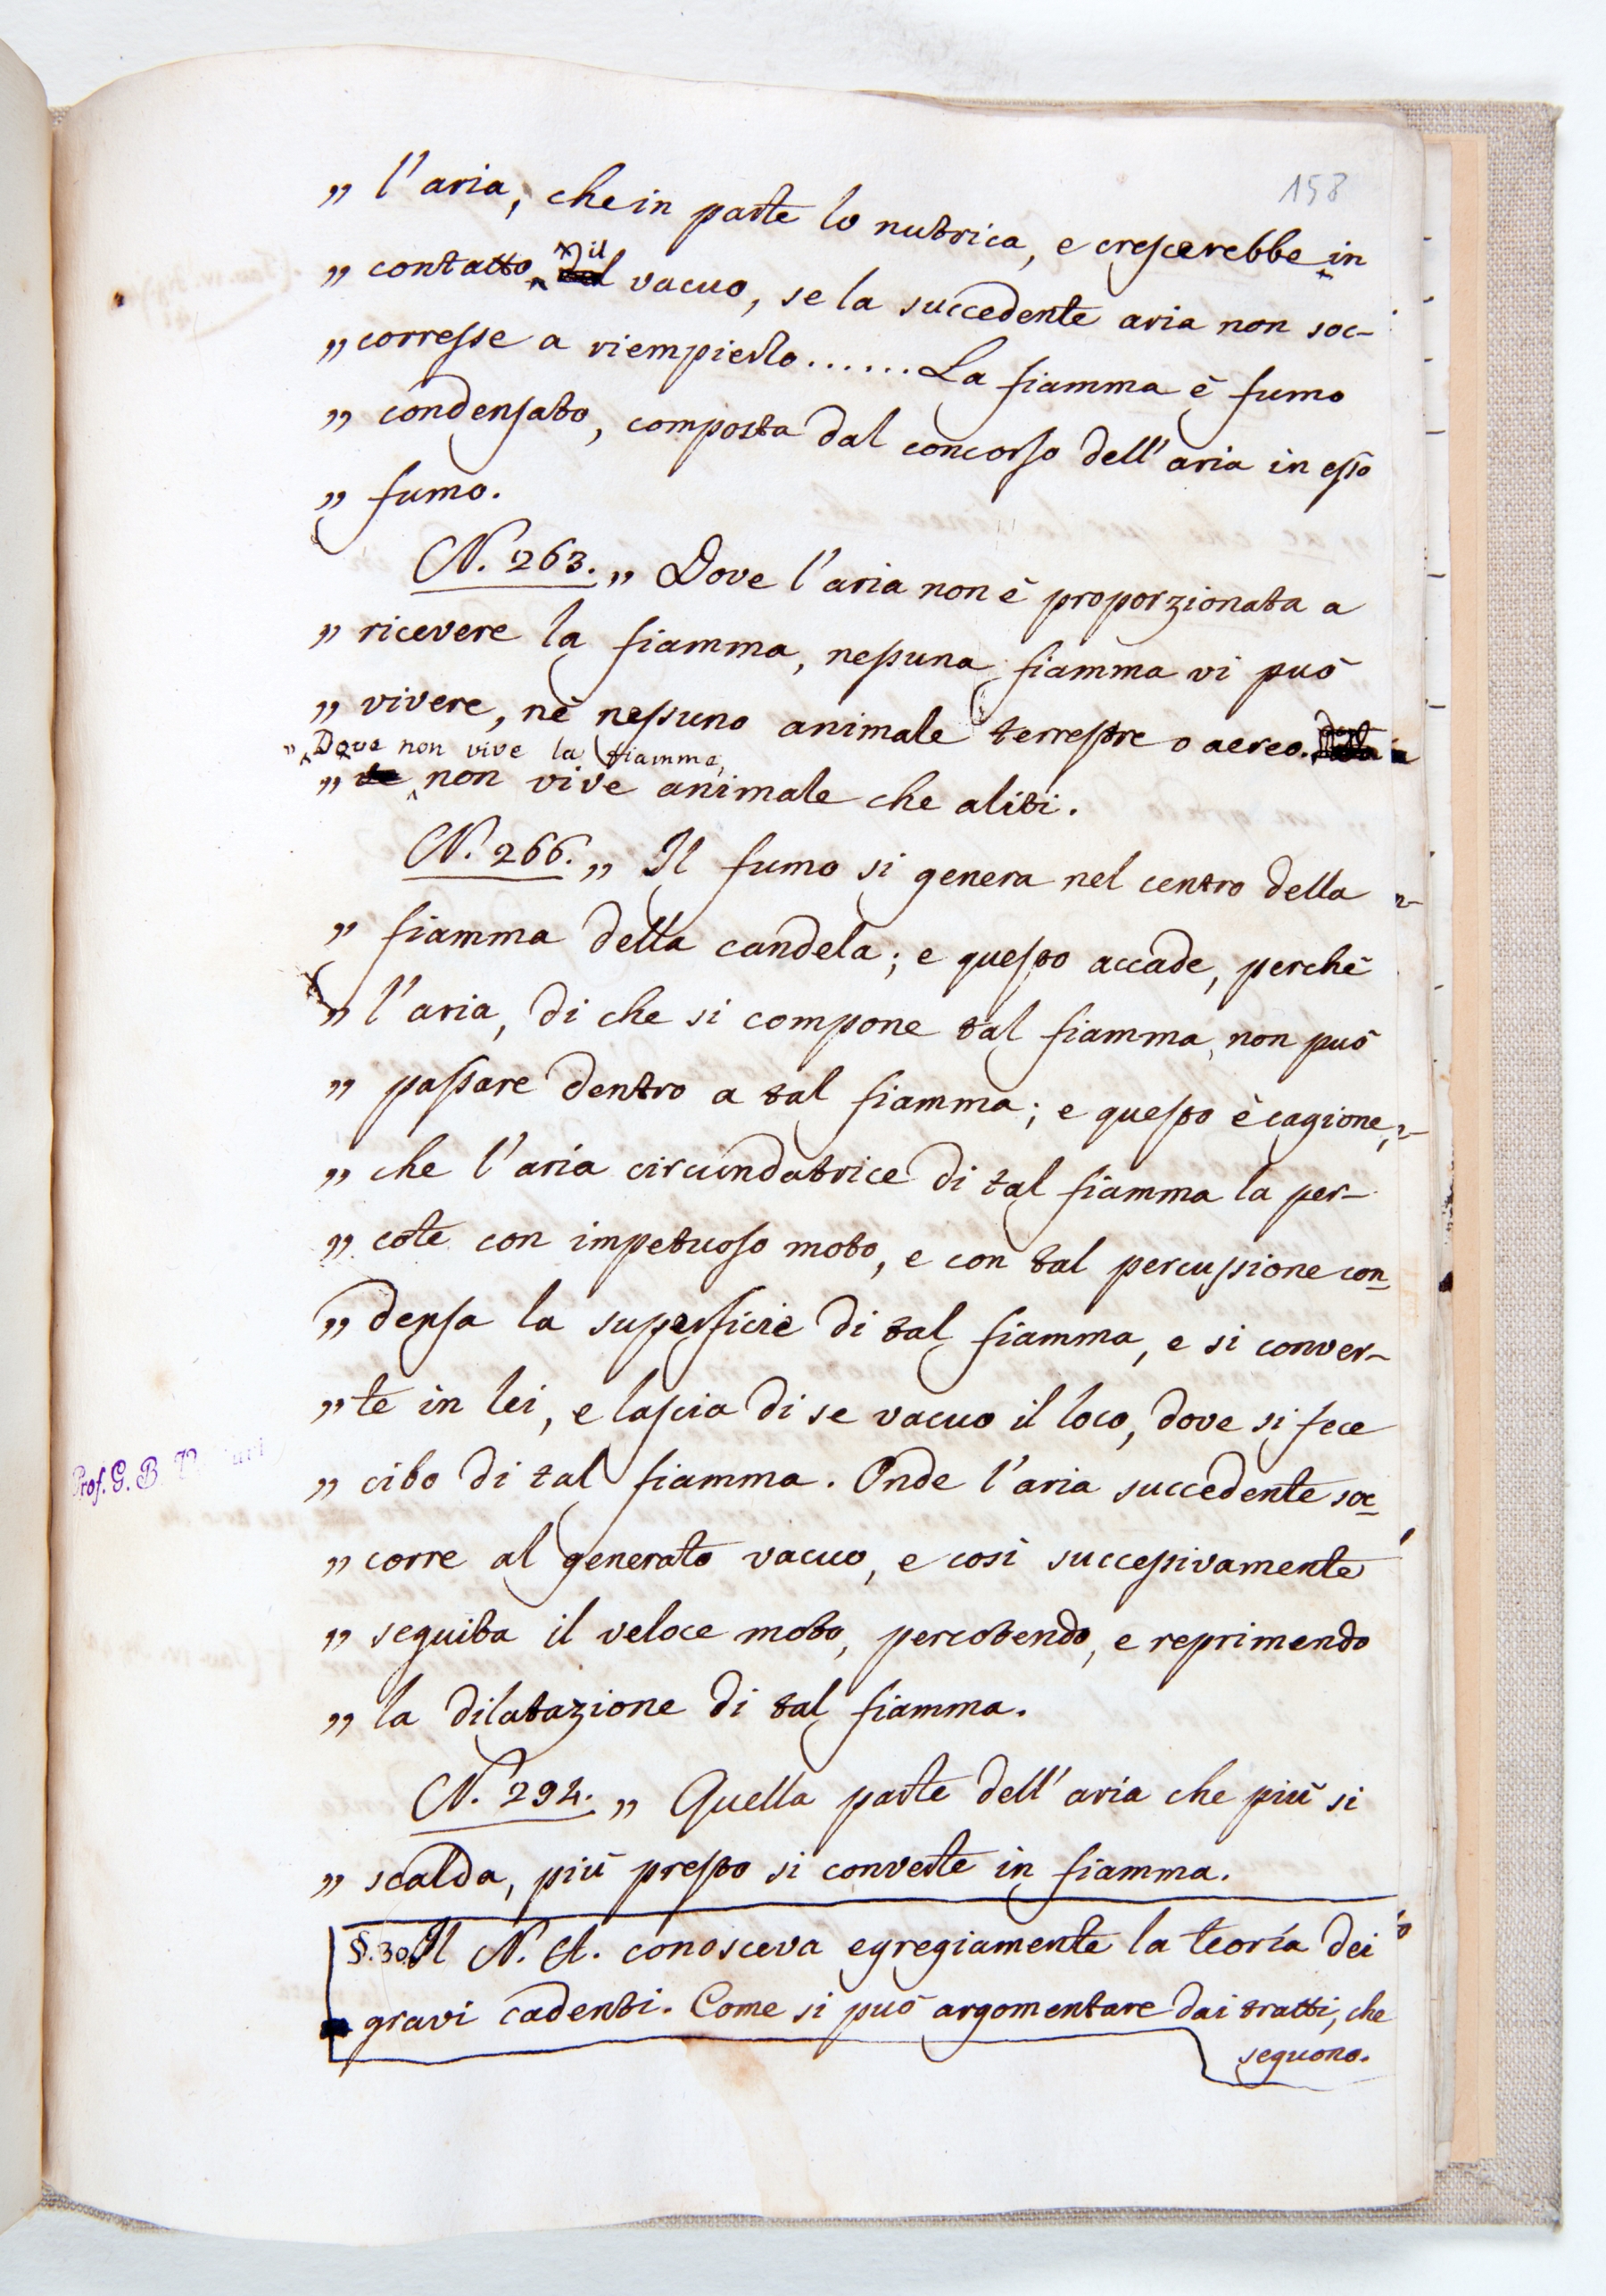 158
„ l'aria, che in parte lo nutrica, e crescerebbe in
„ contatto il vacuo, se la succedente aria non soc-
„ corresse a riempierlo...... La fiamma è fumo
„ condensato, composta dal concorso dell'aria in esso
„ fumo.
N. 263. „ Dove l'aria non è proporzionata a
„ ricevere la fiamma, nessuna fiamma vi può
„ vivere, nè nessuno animale terrestre o aereo.
„ Dove non vive la fiamma,
„ non vive animale che aliti.
N. 266. „ Il fumo si genera nel centro della
„ fiamma della candela; e questo accade, perchè
„ l'aria, di che si compone tal fiamma, non può
„ passare dentro a tal fiamma; e questo è cagione,
„ che l'aria circundatrice di tal fiamma la per-
„ cote con impetuoso moto, e con tal percussione con
„ densa la superficie di tal fiamma, e si conver-
„ te in lei, e lascia di se vacuo il loco, dove si fece
„ cibo di tal fiamma. Onde l'aria succedente soc
„ corre al generato vacuo, e così successivamente
„ seguita il veloce moto, percotendo, e reprimendo
„ la dilatazione di tal fiamma.
N. 294. „ Quella parte dell'aria che più si
„ scalda, più presto si converte in fiamma.
§. 30. Il N. A. conosceva egregiamente la teoría dei
gravi cadenti. Come si può argomentare dai tratti, che
seguono.
Prof. G. B.